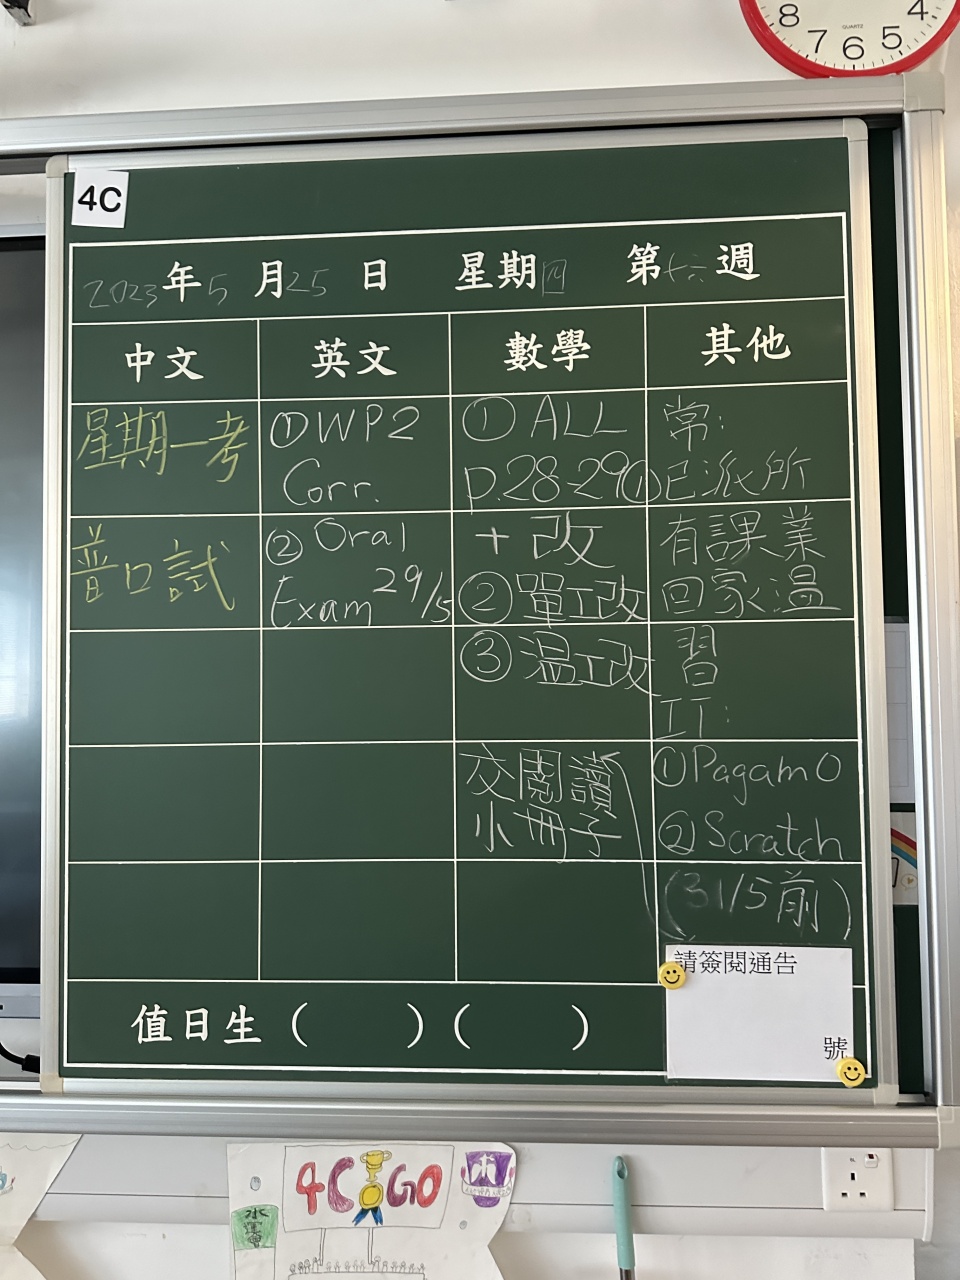 8 7 6 5 4
QUARTZ
4C
2023年5月25日 星期四 第十六週
中文 英文 數學 其他
星期一考
普口試
①WP2
Corr.
② Oral
Exam 29/5
① ALL
P.28-29①
+ 改
②單工改
③溫工改
交閱讀
小冊子
常:
已派所
有課業
回家溫
習
IT:
①Pagamo
②Scratch
(31/5前)
請簽閱通告
號
值日生( )( )
4C GO
水運會